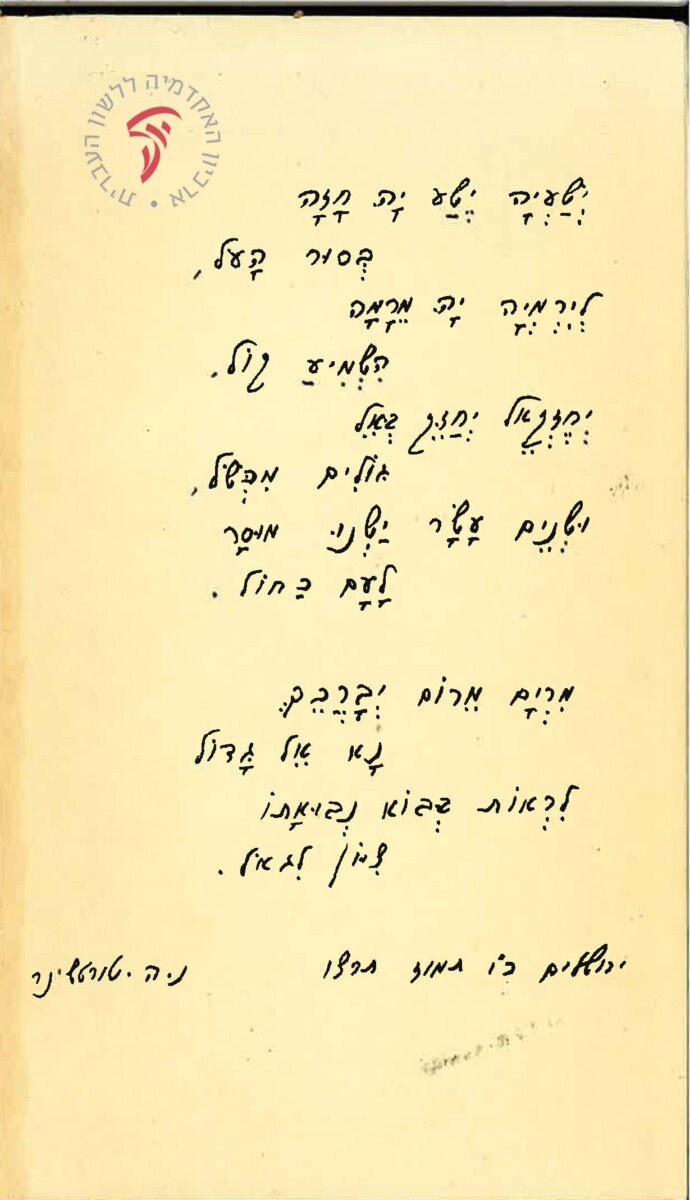 ארכיון האקדמיה ללשון העברית
יְשַׁעְיָה יֵשַׁע יָהּ חָזָה
בְּסוּר הָעֹל,
לְיִרְמְיָה יָהּ מֵרָמָה
הִשְׁמִיעַ קוֹל.
יְחֶזְקֵאל יְחַזֵּק בְּאֵל
גּוֹלִים מִכְּשֹׁל,
וּשְׁנֵים עָשָׂר יַשְׁנוּ מוּסָר
לָעָם כַּחוֹל.
מִרְיָם מֵרוֹם יְבָרֲכֵךְ
נָא אֵל גָּדוֹל
לִרְאוֹת בְּבוֹא נְבוּאָתוֹ
צִיּוֹן לִגְאֹל.
ירושלים כ"ו תמוז תרצ"ו נ.ה. טורטשינר